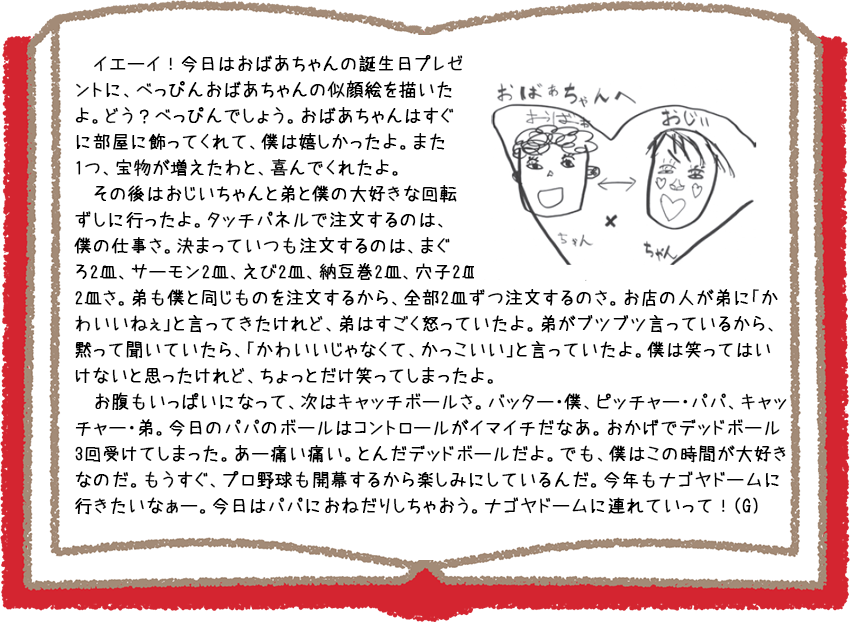 イエーイ！今日はおばあちゃんの誕生日プレゼ
ントに、べっぴんおばあちゃんの似顔絵を描いた
よ。どう？べっぴんでしょう。おばあちゃんはすぐ
に部屋に飾ってくれて、僕は嬉しかったよ。また
1つ、宝物が増えたわと、喜んでくれたよ。
その後はおじいちゃんと弟と僕の大好きな回転
ずしに行ったよ。タッチパネルで注文するのは、
僕の仕事さ。決まっていつも注文するのは、まぐ
ろ2皿、サーモン2皿、えび2皿、納豆巻2皿、穴子2皿
2皿さ。弟も僕と同じものを注文するから、全部2皿ずつ注文するのさ。お店の人が弟に「か
わいいねぇ」と言ってきたけれど、弟はすごく怒っていたよ。弟がブツブツ言っているから、
黙って聞いていたら、「かわいいじゃなくて、かっこいい」と言っていたよ。僕は笑ってはい
けないと思ったけれど、ちょっとだけ笑ってしまったよ。
お腹もいっぱいになって、次はキャッチボールさ。バッター・僕、ピッチャー・パパ、キャッ
チャー・弟。今日のパパのボールはコントロールがイマイチだなあ。おかげでデッドボール
3回受けてしまった。あー痛い痛い。とんだデッドボールだよ。でも、僕はこの時間が大好き
なのだ。もうすぐ、プロ野球も開幕するから楽しみにしているんだ。今年もナゴヤドームに
行きたいなぁー。今日はパパにおねだりしちゃおう。ナゴヤドームに連れていって！(G)
おばぁちゃんへ
おじぃ
ちゃん
ちゃん